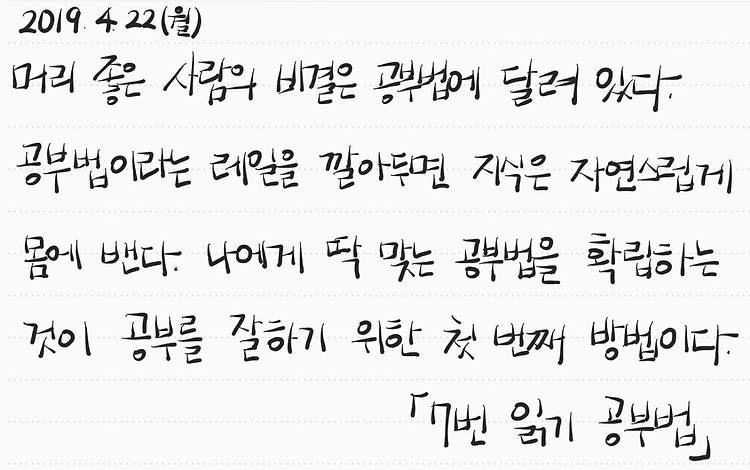 2019. 4. 22 (월)
머리 좋은 사람의 비결은 공부법에 달려 있다.
공부법이라는 레일을 깔아두면 지식은 자연스럽게
몸에 밴다. 나에게 딱 맞는 공부법을 확립하는
것이 공부를 잘하기 위한 첫 번째 방법이다.
「7번 읽기 공부법」